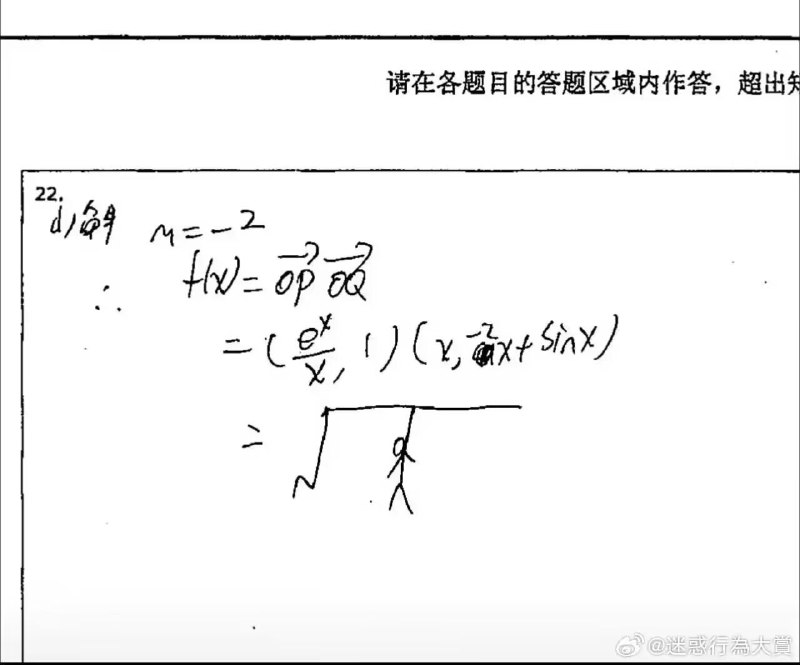 请在各题目的答题区域内作答，超出
22.
(1)解 m=-2
∴ f(x)=\overrightarrow{OP} \overrightarrow{OQ}
=(\frac{e^x}{x}, 1)(x, -2x+sinx)
= √
@迷惑行為大賞